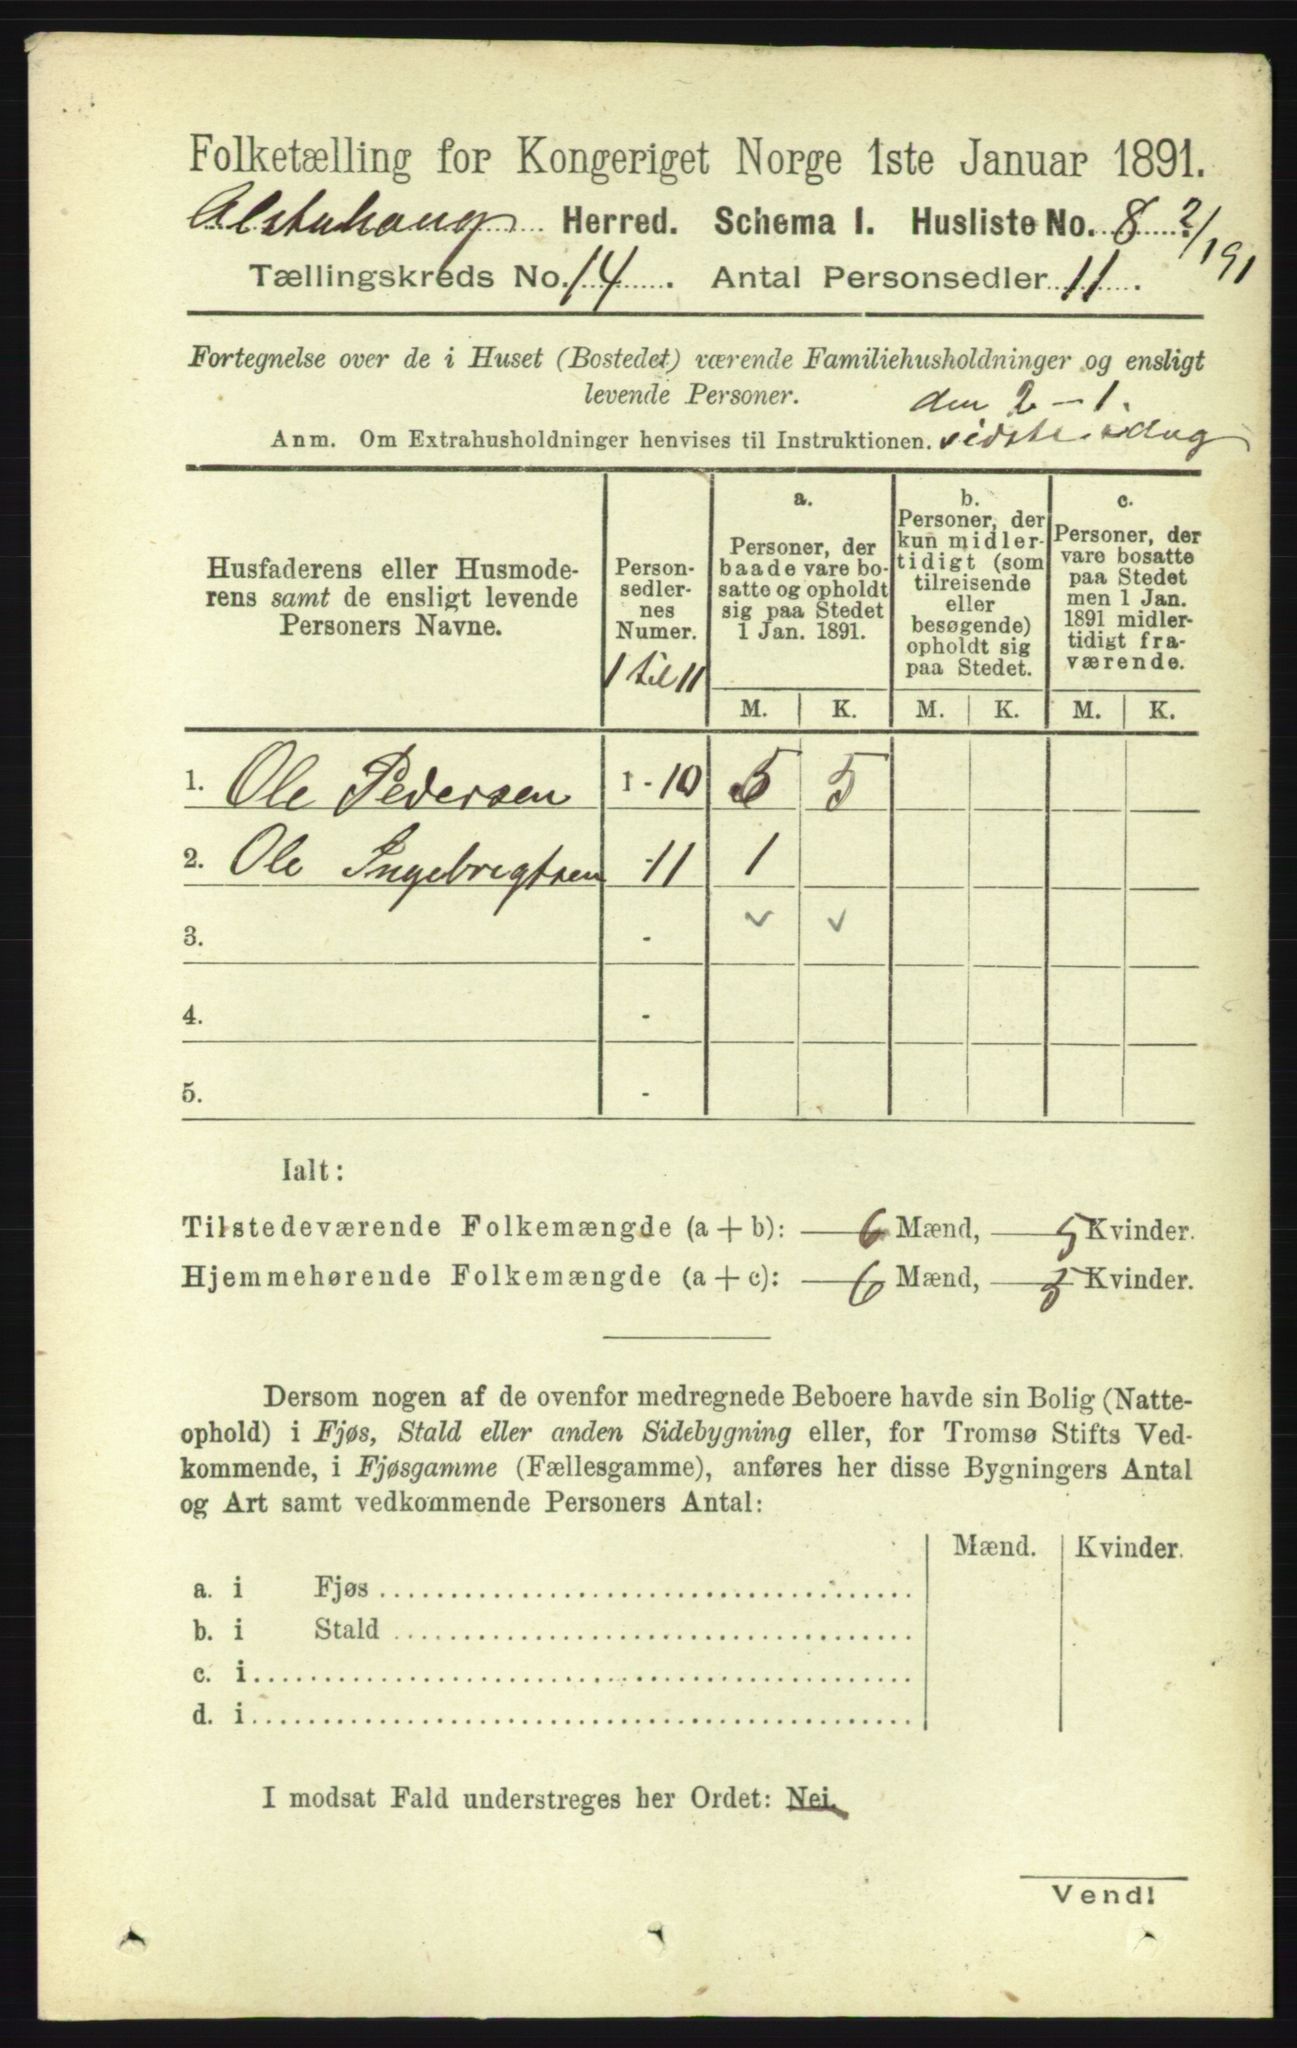 Folketælling for Kongeriget Norge 1ste Januar 1891.
Alstahaug Herred. Schema I. Husliste No. 8 2/1 91
Tællingskreds No. 14. Antal Personsedler 11.
Fortegnelse over de i Huset (Bostedet) værende Familiehusholdninger og ensligt
levende Personer.
den 2-1.
Anm. Om Extrahusholdninger henvises til Instruktionen. sidste dag
Husfaderens eller Husmode-
rens samt de ensligt levende
Personers Navne.
Person-
sedler-
nes
Numer.
1 til 11
a.
Personer, der
baade vare bo-
satte og opholdt
sig paa Stedet
1 Jan. 1891.
b.
Personer, der
kun midler-
tidigt (som
tilreisende
eller
besøgende)
opholdt sig
paa Stedet.
c.
Personer, der
vare bosatte
paa Stedet
men 1 Jan.
1891 midler-
tidigt fra-
værende.
M. K. M. K. M. K.
1. Ole Pedersen 1-10 5 5
2. Ole Ingebrigtsen -11 1
3. -
4. -
5. -
Ialt:
Tilstedeværende Folkemængde (a+b): 6 Mænd, 5 Kvinder.
Hjemmehørende Folkemængde (a+c): 6 Mænd, 5 Kvinder.
Dersom nogen af de ovenfor medregnede Beboere havde sin Bolig (Natte-
ophold) i Fjøs, Stald eller anden Sidebygning eller, for Tromsø Stifts Ved-
kommende, i Fjøsgamme (Fællesgamme), anføres her disse Bygningers Antal
og Art samt vedkommende Personers Antal:
Mænd. Kvinder.
a. i Fjøs
b. i Stald
c. i
d. i
I modsat Fald understreges her Ordet: Nei.
Vend!